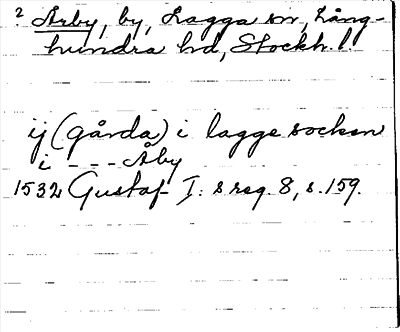 ? Årby, by, Lagga sn, Lång-
hundra hd, Stockh. l.
ij (gårda) i lagge socken
i - - - Åby
1532 Gustaf I: s reg. 8, s. 159.